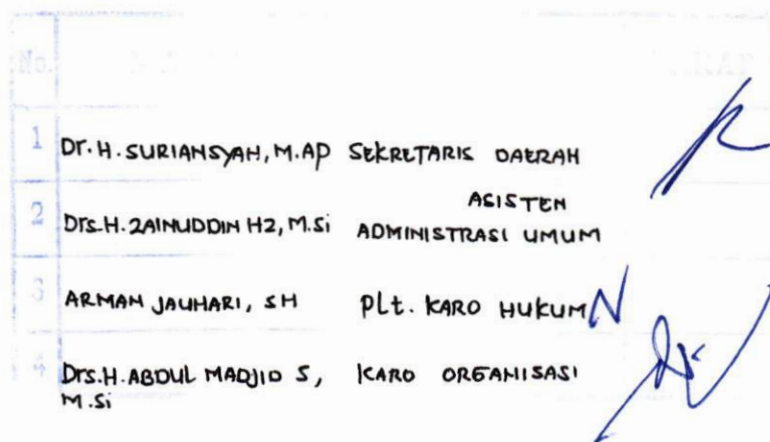 No.
1 Dr. H. SURIANSYAH, M.AP SEKRETARIS DAERAH
2 Drs.H. ZAINUDDIN HZ, M.Si ASISTEN
ADMINISTRASI UMUM
3 ARMAN JAUHARI, SH Plt. KARO HUKUM
4 Drs.H. ABDUL MADJID S, KARO ORGANISASI
M.Si